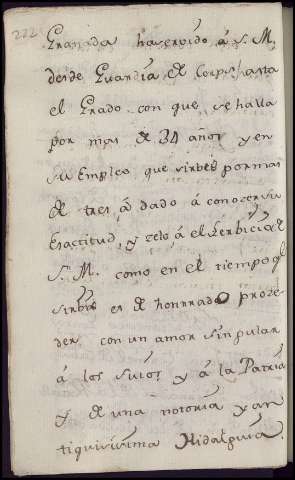 222
Granada ha servido á S. M,
desde Guardia de Corps, hasta
el Grado con que se halla
por mas de 34 años y en
su Empleo que sirbe, por mas
de tres, á dado á conocer su
Exactitud, y zelo á el Serbicio de
S. M. como en el tiempo q̃
sirbe, es de honrrado proze-
der, con un amor singular
á los Suios, y á la Patria
y de una notoria y an
tiquivisima Hidalguia.